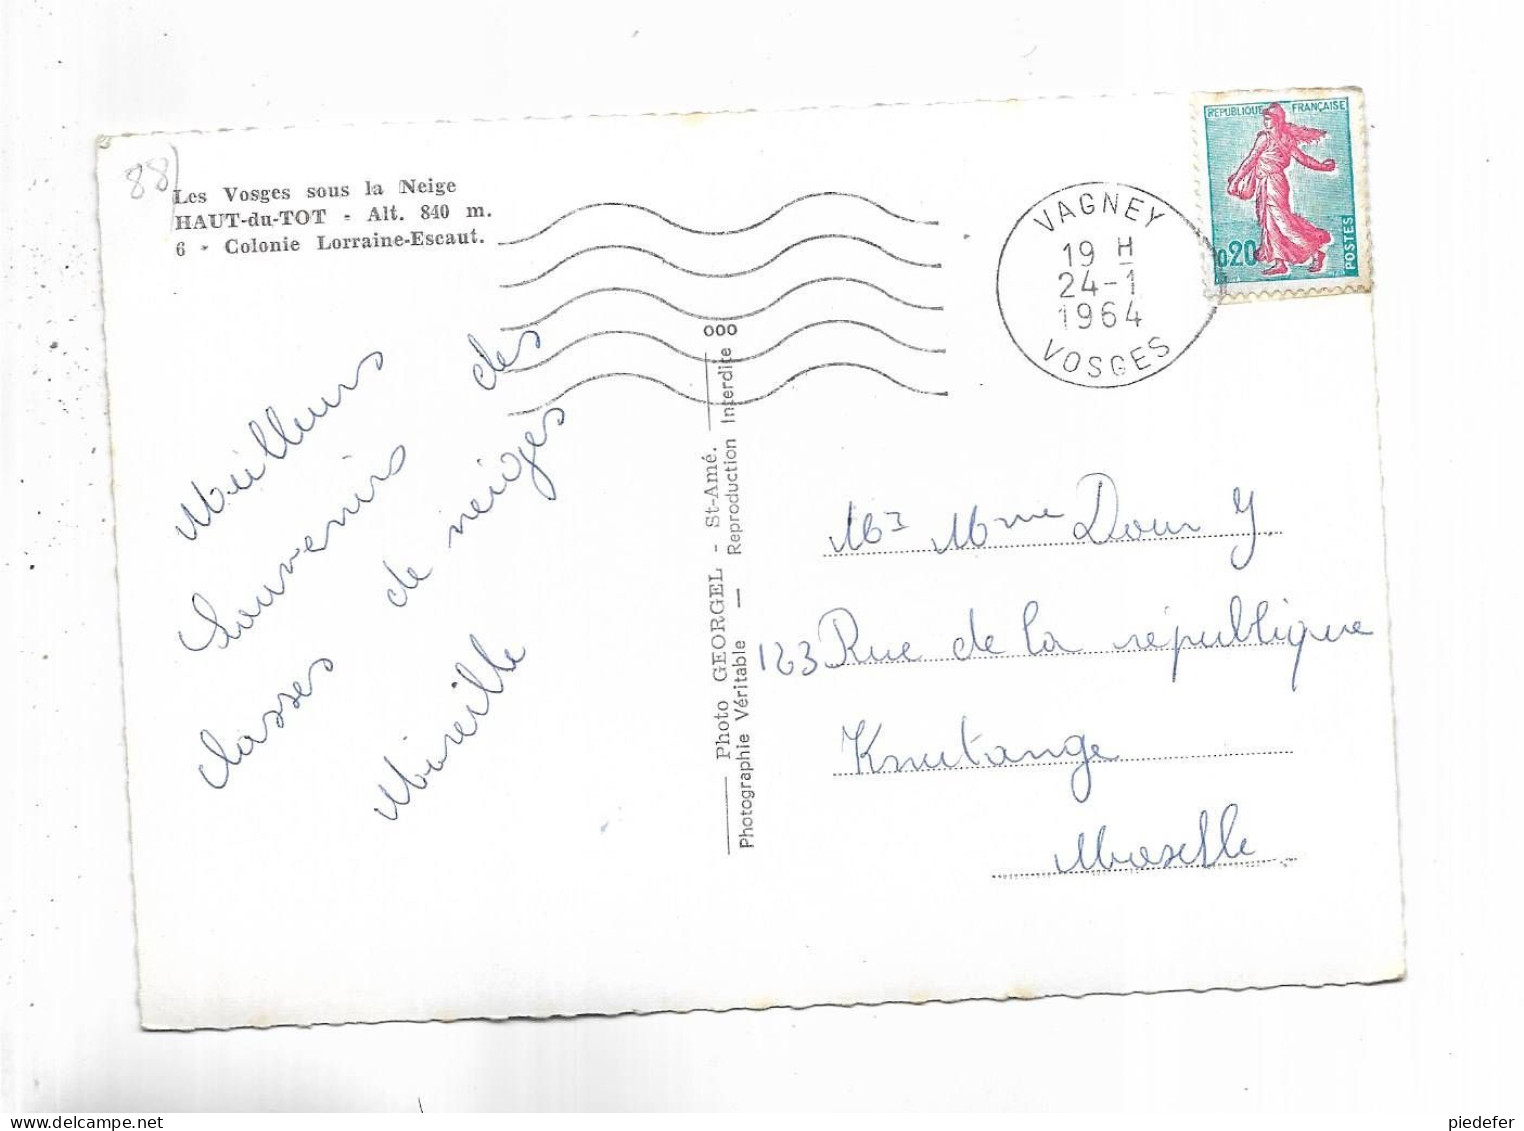 88
Les Vosges sous la Neige
HAUT-du-TOT - Alt. 840 m.
6 - Colonie Lorraine-Escaut.
REPUBLIQUE FRANÇAISE
0,20
POSTES
VAGNEY
19 H
24-1
1964
VOSGES
Meilleurs
Souvenirs des
classes de neiges
Mireille
000
Photo GEORGEL - St-Amé.
Photographie Véritable — Reproduction Interdite
Mr Mme Dour Y
123 Rue de la république
Knutange
Moselle
piedefer